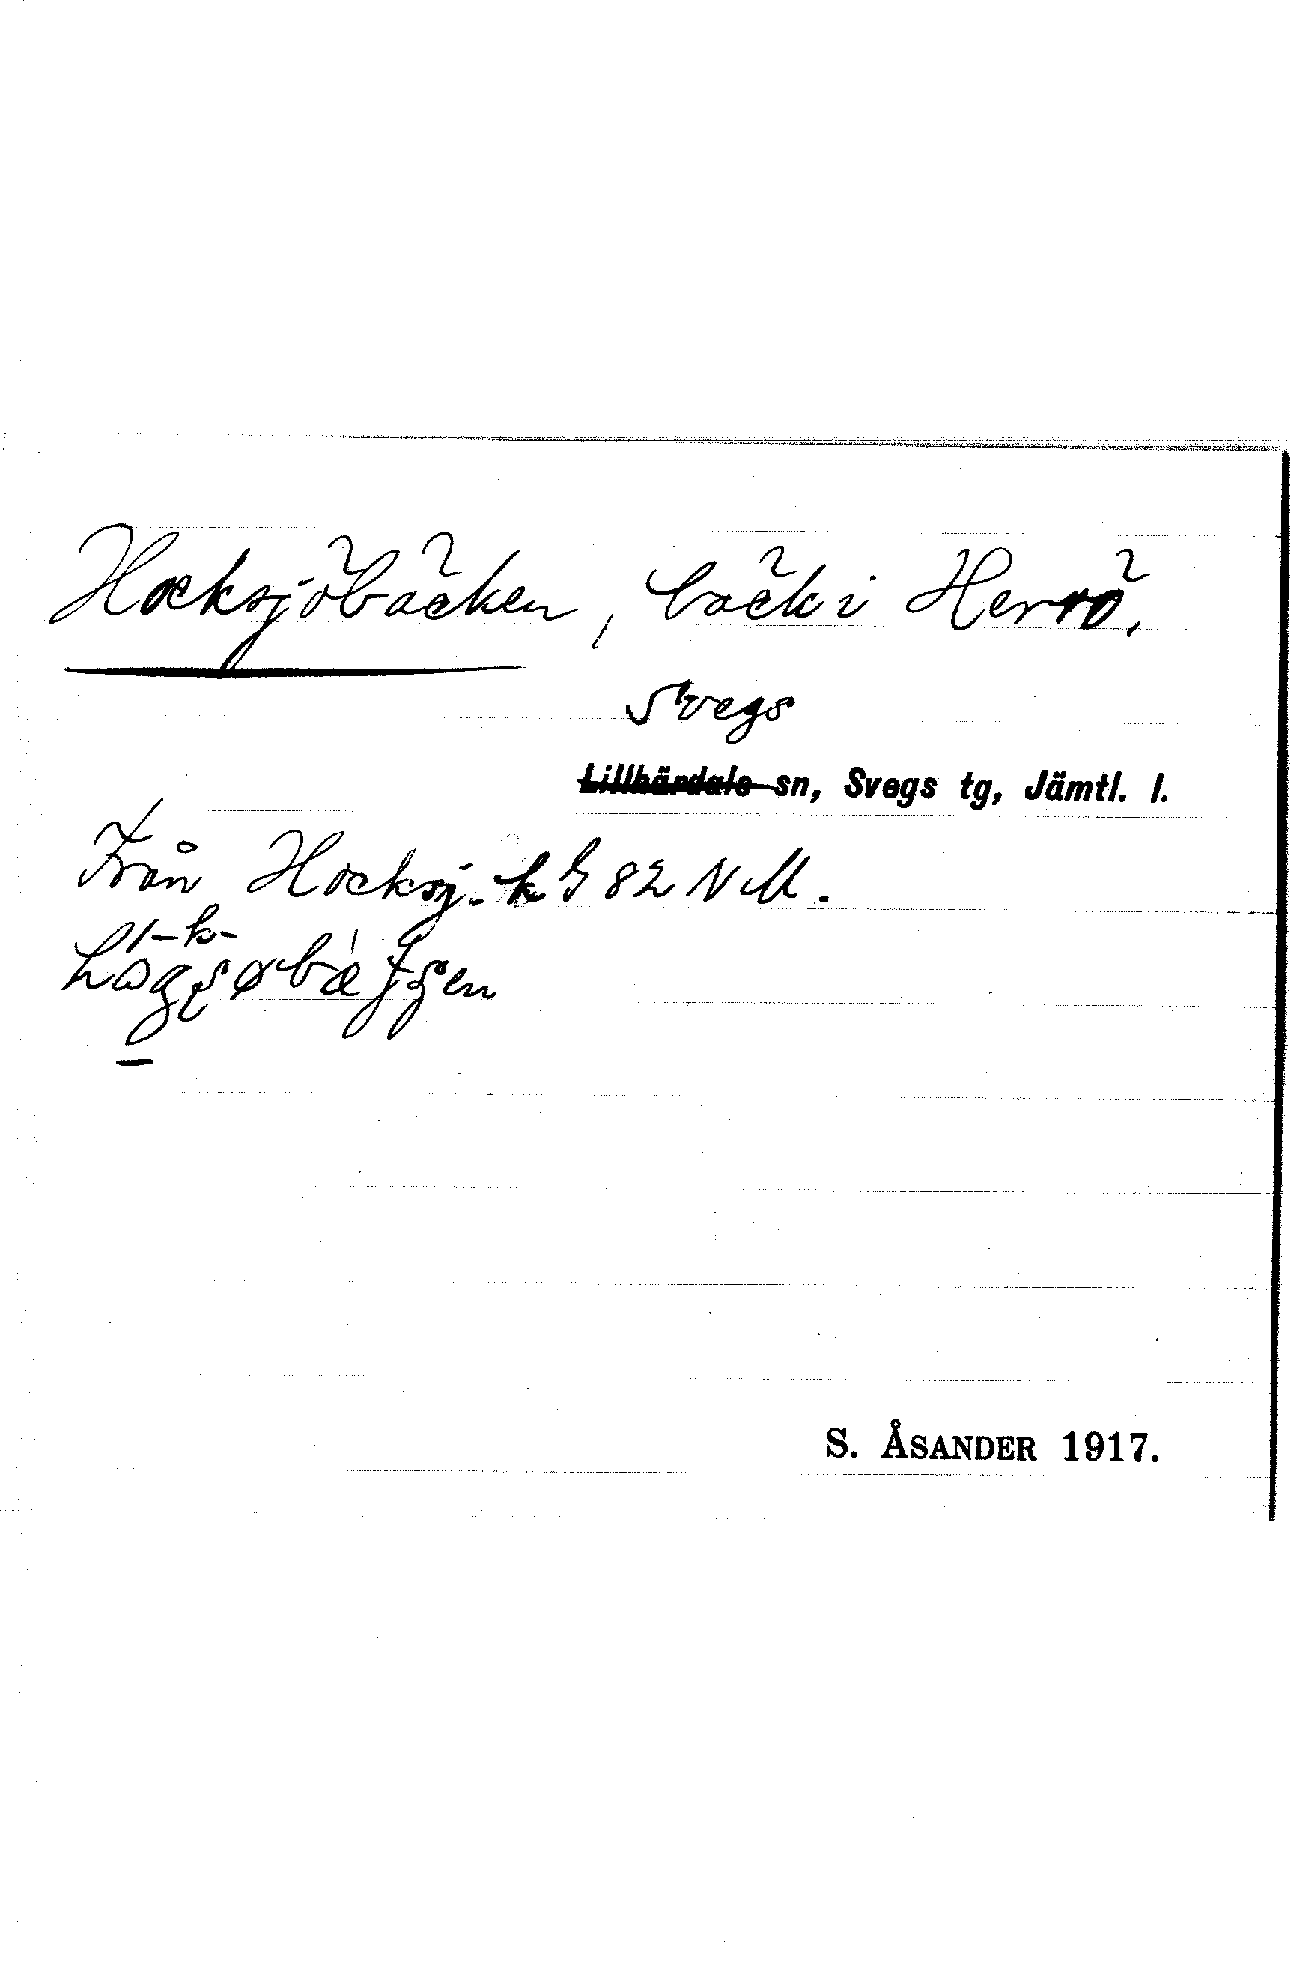 Hocksjöbäcken, bäck i Herrö.
Svegs
Lillhärdals sn, Svegs tg, Jämtl. l.
Från Hocksj. k G 82 N M.
S. ÅSANDER 1917.